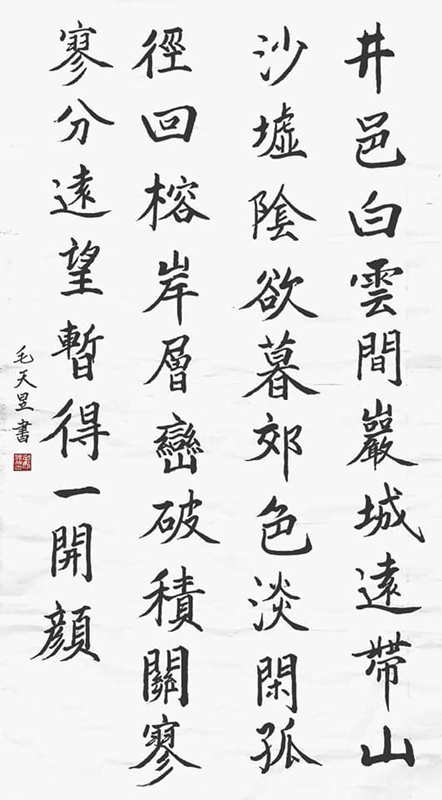 井邑白雲間巖城遠帶山
沙墟陰欲暮郊色淡閑孤
徑回榕岸層巒破積關寥
寥分遠望暫得一開顏
毛天昱書